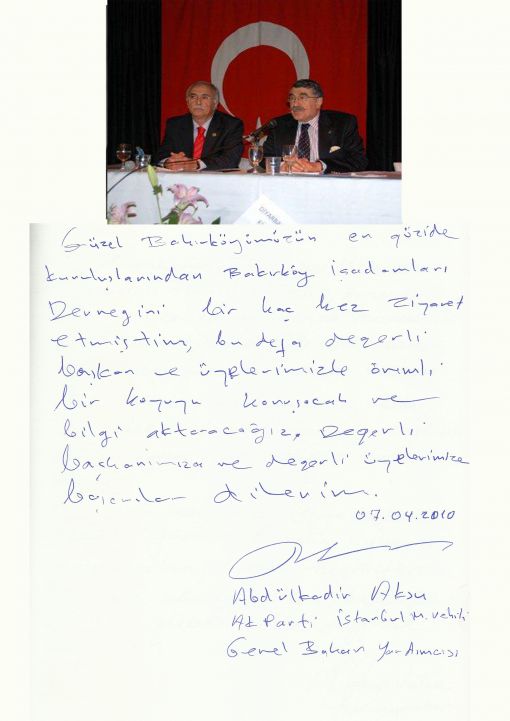 DİYARBA
Güzel Bakırköyümüzün en güzide
kuruluşlarından Bakırköy işadamları
Derneğini bir kaç kez ziyaret
etmiştim, bu defa değerli
başkan ve üyelerimizle önemli
bir konuyu konuşacak ve
bilgi aktaracağız. Değerli
başkanımıza ve değerli üyelerimize
başarılar dilerim.
07.04.2010
Abdülkadir Aksu
Ak Parti İstanbul M. vekili
Genel Başkan Yardımcısı